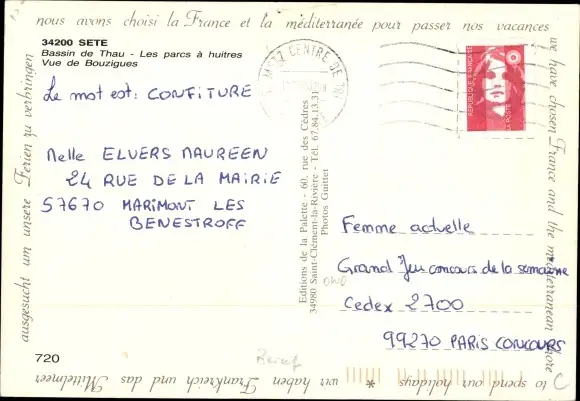 nous avons choisi la France et la méditerranée pour passer nos vacances
we have chosen France and the mediterranean shore
to spend our holidays * wir haben Frankreich und das Mittelmeer
ausgesucht um unsere Ferien zu verbringen
34200 SETE
Bassin de Thau - Les parcs à huitres
Vue de Bouzigues
METZ CENTRE DE TRI
REPUBLIQUE FRANÇAISE
LA POSTE
Le mot est : CONFITURE
Melle ELVERS MAUREEN
24 RUE DE LA MAIRIE
57670 MARIMONT LES
BENESTROFF
Editions de la Palette - 60, rue des Cèdres
34980 Saint-Clément-la-Rivière - Tél. 67.84.13.31
Photos Guittet
Femme actuelle
Grand Jeu concours de la semaine
Cedex 2700
99270 PARIS CONCOURS
720